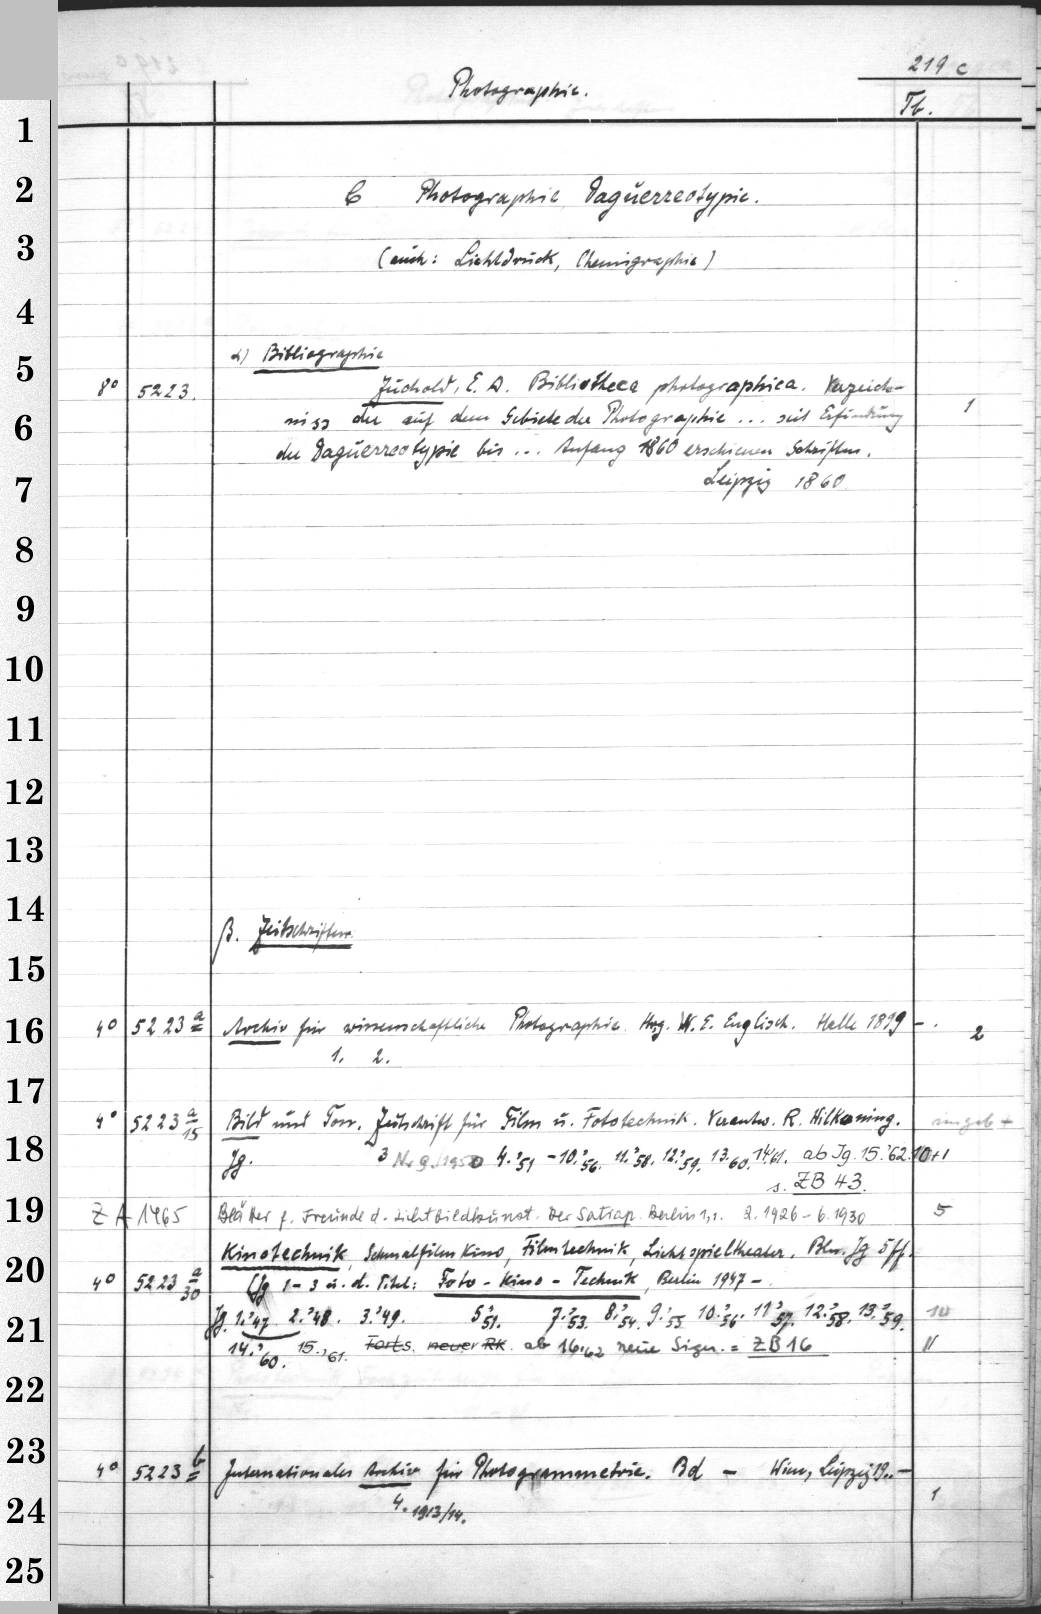 219 c
Photographie.
Tb.
1
2
C Photographie Daguerreotypie.
3
(auch: Lichtdruck, Chemigraphie)
4
5
α) Bibliographie
8° 5223. Zuchold, E. A. Bibliotheca photographica. Verzeich-
6
niss der auf dem Gebiete der Photographie ... seit Erfindung 1
der Daguerreotypie bis ... Anfang 1860 erschienen Schriften.
7
Leipzig 1860.
8
9
10
11
12
13
14
β. Zeitschriften
15
16
4° 5223 a Archiv für wissenschaftliche Photographie. Hrsg. W. E. Englisch. Halle 1899 - . 2
1. 2.
17
4° 5223 a/15 Bild und Ton. Zeitschrift für Film u. Fototechnik. Verantw. R. Hilkenning.
18
Jg. 3 Nr 9. 1950 4.'51 - 10.'56. 11.'58. 12.'59. 13.60. 14.'61. ab Jg. 15.'62. 10+1
s. ZB 43.
19
ZA 1465 Blätter f. Freunde d. Lichtbildkunst. Der Satrap. Berlin 1,1. 2.1926 - 6.1930 5
Kinotechnik, Schmalfilm Kino, Filmtechnik, Lichtspieltheater. Bln. Jg 5 ff.
20
4° 5223 a/30 (Jg 1-3 u. d. Titel: Foto-Kino-Technik, Berlin 1947 -
21
Jg. 1.'47 2.'48. 3.'49. 5.'51. 7.'53. 8.'54. 9.'55. 10.'56. 11.'57. 12.'58. 13.'59. 10
14.'60. 15.'61. Forts. neuer RK. ab 16.'62 neue Sign. = ZB 16 11
22
23
4° 5223 b Internationales Archiv für Photogrammetrie. Bd - Wien, Leipzig 19.. -
24
4. 1913/14. 1
25